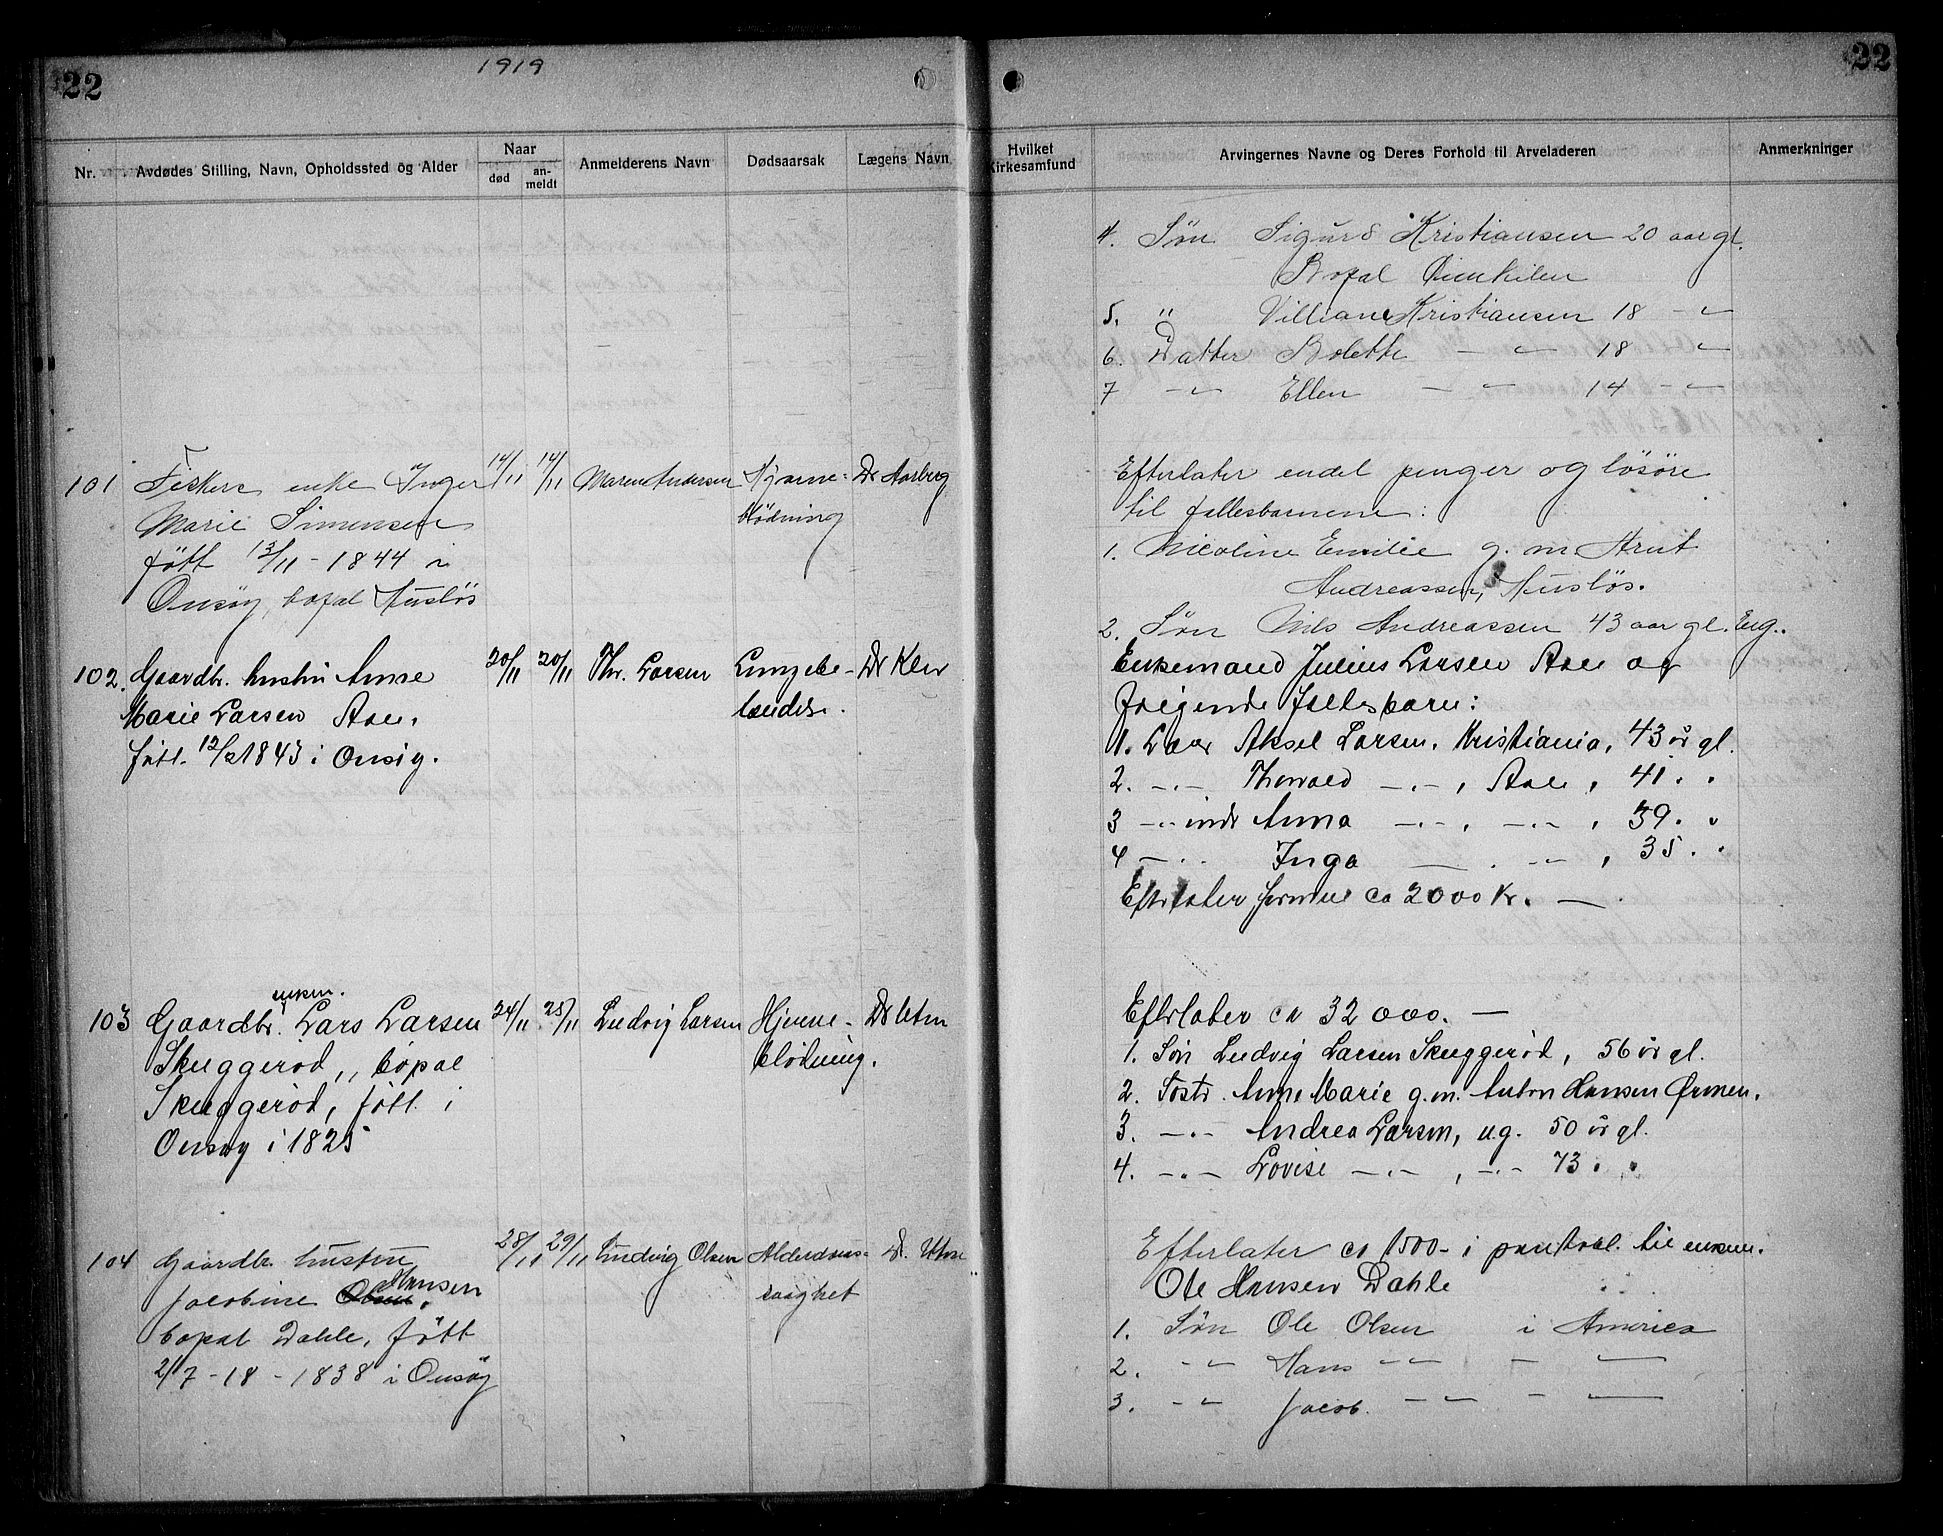 22
1919
22
Nr.
Avdødes Stilling, Navn, Opholdssted og Alder
Naar
død
an-
meldt
Anmelderens Navn
Dødsaarsak
Lægens Navn
Hvilket
Kirkesamfund
Arvingernes Navne og Deres Forhold til Arveladeren
Anmerkninger
4. Søn Sigurd Kristiansen 20 aar gl.
Bopal
5. " Villiam Kristiansen 18 - "
6. Datter Bolette - " 18 "
7 - " Ellen - " 14 - "
101 Fiskers enke Inger 14/11 14/11 Maren Andersen Hjerne- Dr Aarberg
Marie Simensen blødning
født 13/11 - 1844 i
Onsøy, bopal Husløs
Efterlater endel penger og løsøre
til fællesbarnene:
1. Nicoline Emilie g. m. Arnt
Andreassen, Husløs.
2. Søn Nils Andreassen 43 aar gl. Eng..
102. Gaardbr. hustru Anne 20/11 20/11 Thv. Larsen Lungebe- Dr Klev
Marie Larsen Aale. tændelse.
født. 12/2 1843 i Onsøy.
Enkemand Julius Larsen Aale og
følgende fællesbarn:
1. Lars Aksel Larsen, Kristiania, 43 år gl.
2. -"- Thorvald -"-, Aale, 41. "
3 -"- Anna -"-, -"-, 39. "
4 -"- Inga - . -"-, 35. "
Efterlater formue ca 2000 Kr. —
103 Gaardbr. enken. Lars Larsen 24/11 25/11 Ludvig Larsen Hjerne- Dr Utne
Skuggerød,, bopæl blødning.
Skuggerød, født i
Onsøy i 1825
Efterlater ca 32000. —
1. Søn Ludvig Larsen Skuggerød, 56 år gl.
2. Dostr. Anne Marie g.m. Anton Hansen Ørmen.
3. -"- Andrea Larsen, ug. 50 år gl.
4. -"- Lovise -"-, -"- 73 " "
104 Gaardbr. hustru 28/11 29/11 Ludvig Olsen Alderdoms- Dr. Utne
Jacobine Olsen. Hansen svaghet
bopæl Dahle, født
2/7 - 18 - 1838 i Onsøy
Efterlater ca 1500- i til enkem.
Ole Hansen Dahle
1. Søn Ole Olsen i America
2. -"- Hans -"- - —
3. -"- Jacob. -"- - —